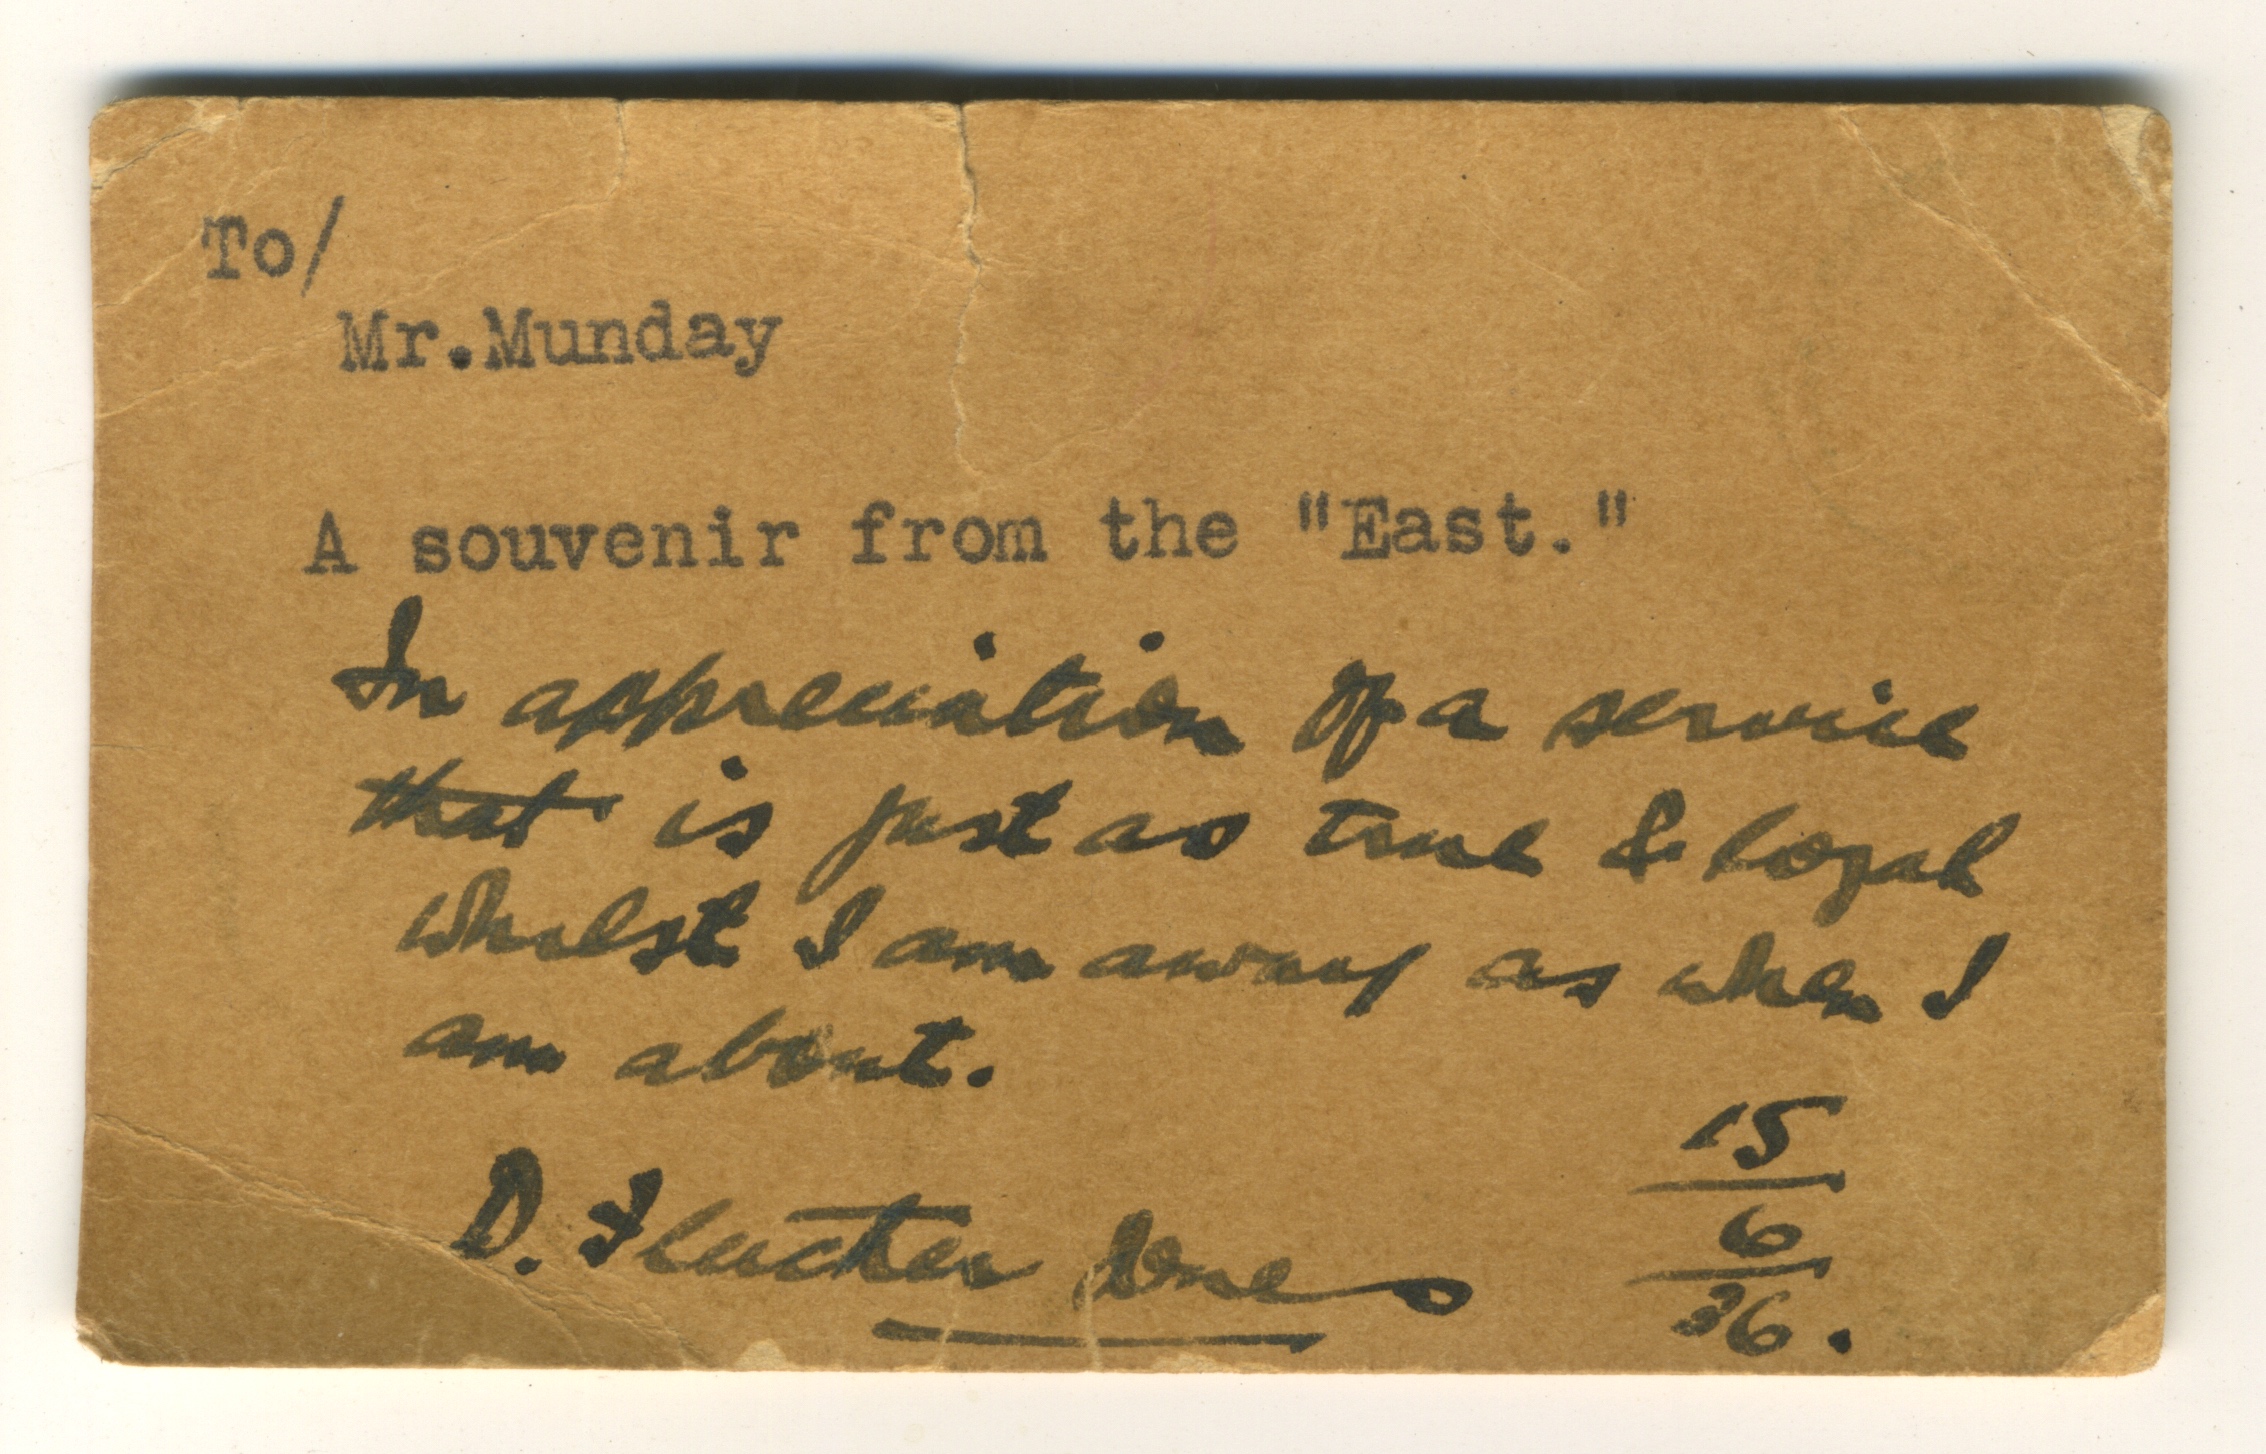 To/
Mr.Munday
A souvenir from the "East."
In appreciation of a service
that is just as true & loyal
whilst I am away as when I
am about.
D. Fletcher Jones
15
6
36.